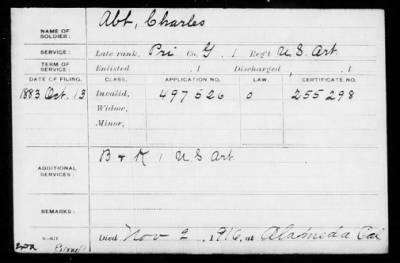 Abt, Charles
NAME OF SOLDIER:
SERVICE: Late rank, Pri Co. G, 1 Reg't U.S. Art.
TERM OF SERVICE: Enlisted , 1 Discharged , 1
DATE OF FILING. CLASS. APPLICATION NO. LAW. CERTIFICATE NO.
1883 Oct. 13 Invalid, 497526 0 255298
Widow,
Minor,
B + K 1 U S Art
ADDITIONAL SERVICES:
REMARKS:
Died Nov 2, 1916, at Alameda Cal